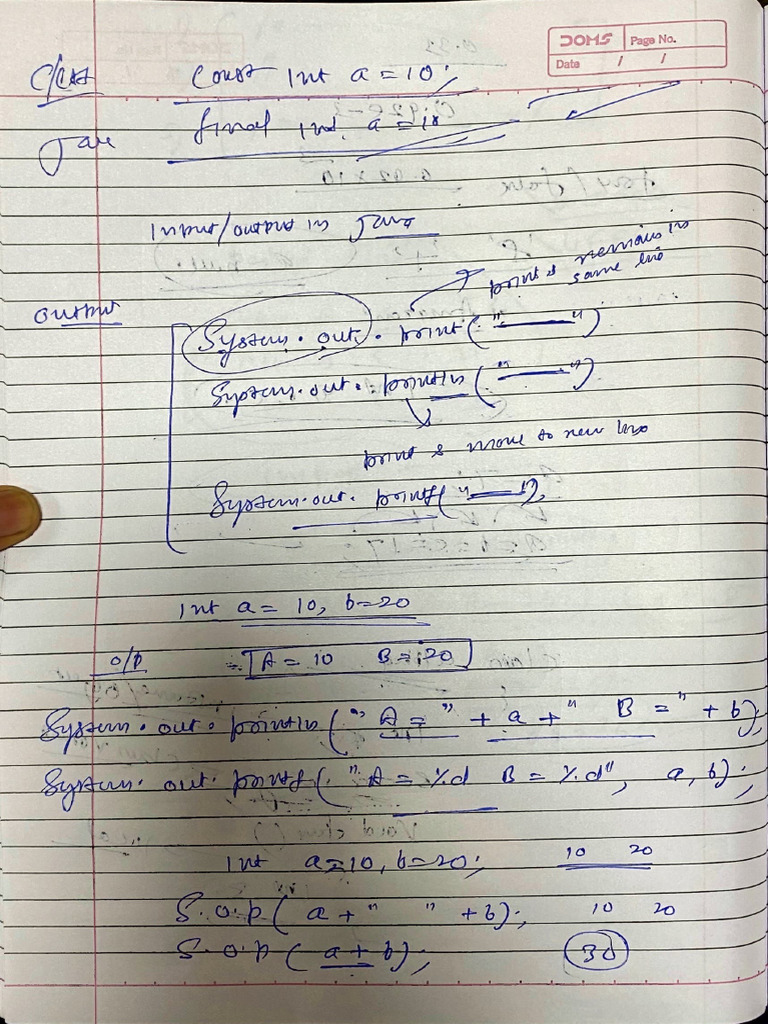 DOMS Page No.
Date / /
C/C++ const int a = 10;
Java final int a = 10
Input/output in Java
print & remains in
same line
output
System.out.print("——")
System.out.println("——")
print & move to new line
System.out.printf("——");
int a = 10, b=20
o/p A = 10 B = 20
System.out.println("A = " + a + " B = " + b);
System.out.printf("A = %d B = %d", a, b);
int a=10, b=20; 10 20
S.o.p( a + " " + b); 10 20
S.o.p ( a + b); 30